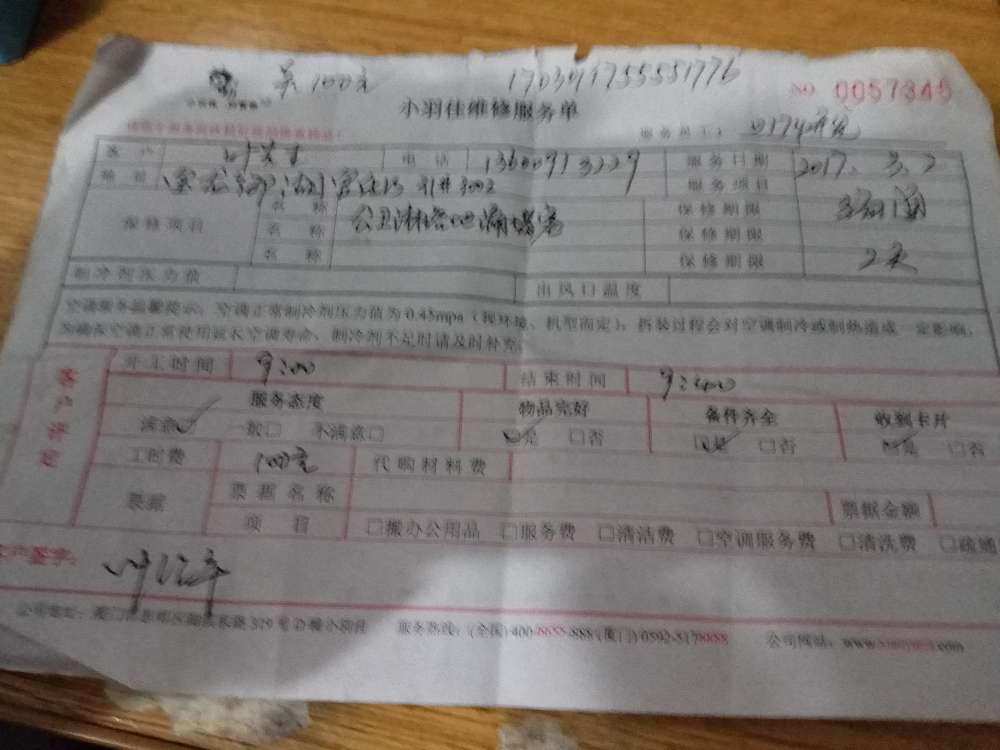 100元 1703011755551776
NO 0057345
小羽佳维修服务单
客户 电话 13600913229 服务日期 2017.3.2
服务项目
保修项目 名称 保修期限
名称 公卫淋浴地漏堵塞 保修期限
名称 保修期限 2天
制冷剂压力值 出风口温度
空调服务温馨提示：空调正常制冷剂压力值为0.45mpa（视环境、机型而定），拆装过程会对空调制冷或制热造成一定影响，
为确保空调正常使用延长空调寿命，制冷剂不足时请及时补充。
客户评定
开工时间 9:00 结束时间
服务态度 物品完好 备件齐全 收到卡片
满意 一般□ 不满意□ 是 □否 是 □否 是 □否
工时费 100元 代购材料费
票据 票据名称 票据金额
项目 □搬办公用品 □服务费 □清洁费 □空调服务费 □清洗费 □疏通
客户签字：
公司地址：厦门 319号 小羽佳 服务热线：(全国)400-8655-888 (厦门)0592-5178888 公司网站：www. .com